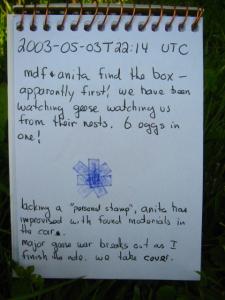 2003-05-03T22:14 UTC
mdf & anita find the box –
apparently first! we have been
watching geese watching us
from their nests. 6 eggs in
one!
lacking a "personal stamp", anita has
improvised with found materials in
the car.
major goose war breaks out as I
finish this note. we take cover.